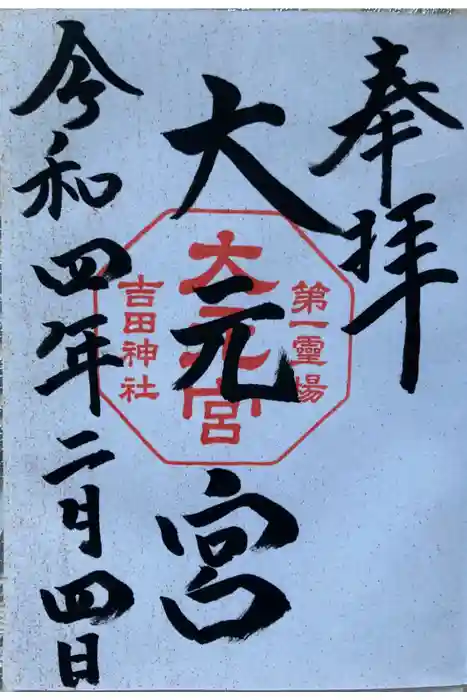 奉拝
第一靈場
大元宮
大元宮
吉田神社
令和四年二月四日